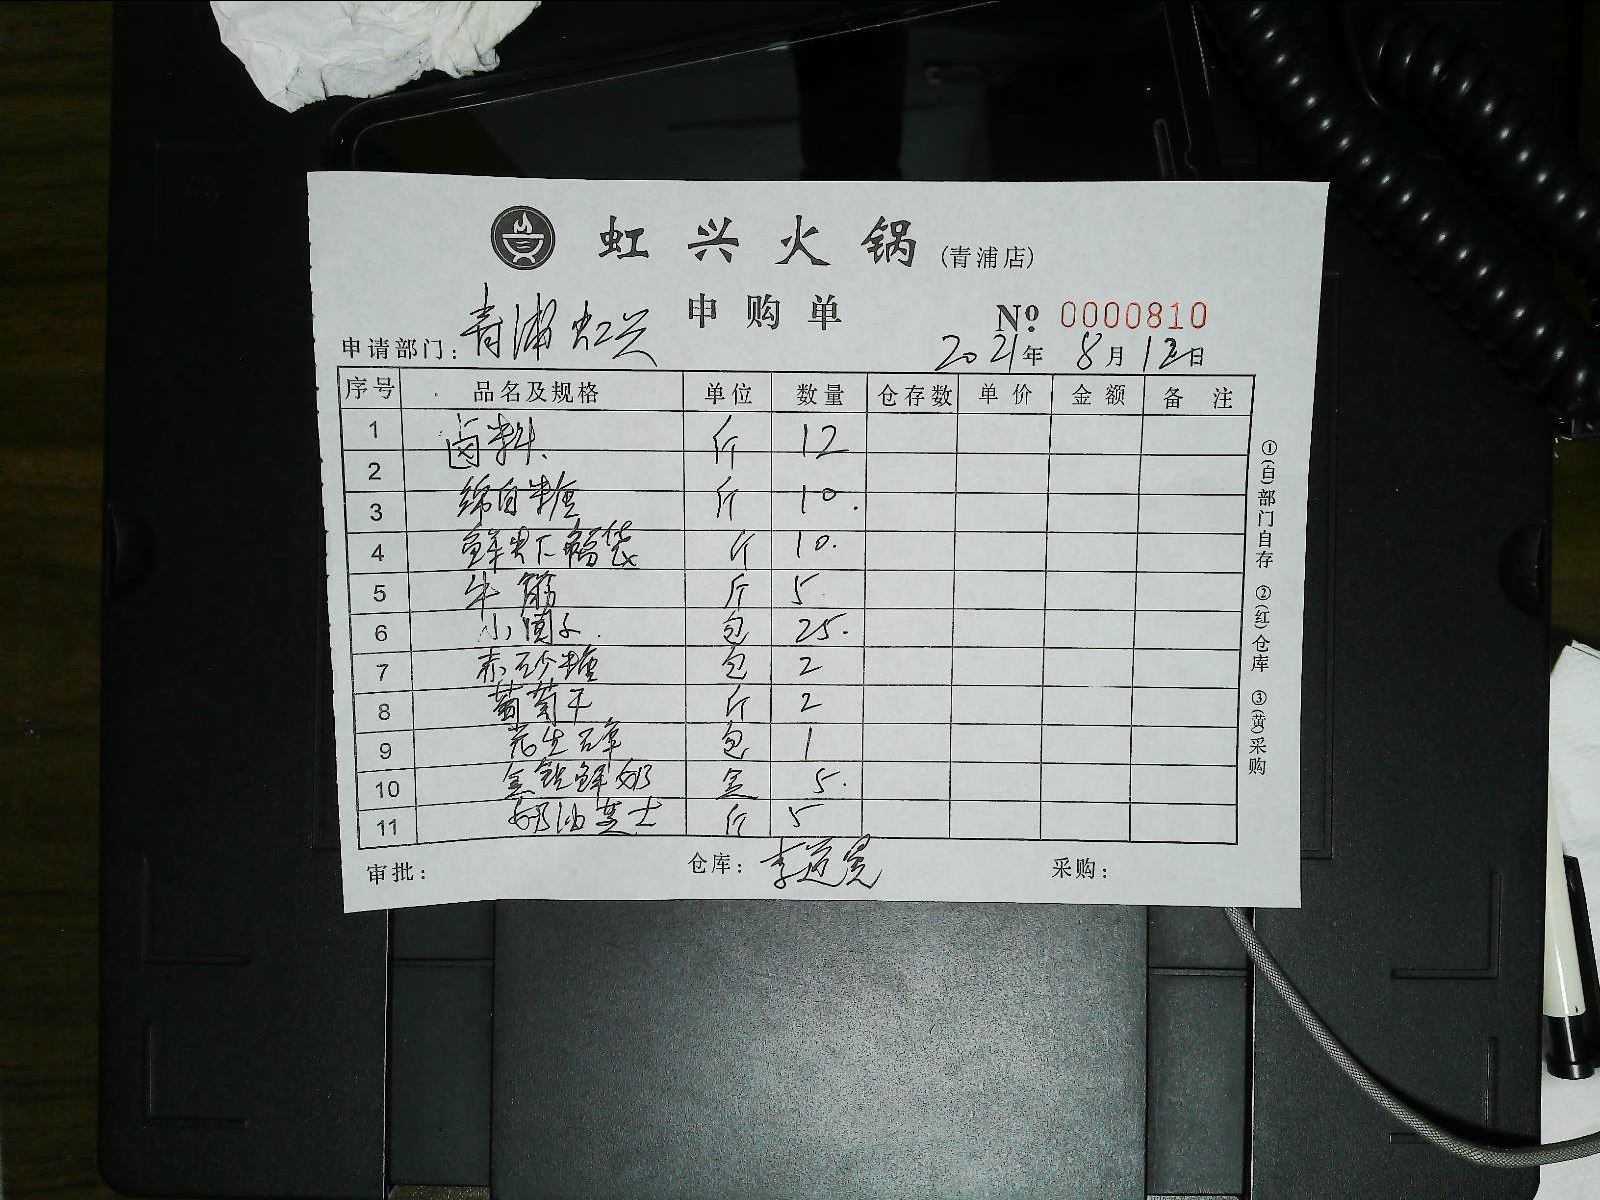 虹兴火锅(青浦店)
申购单 No: 0000810
申请部门: 青浦虹兴 2021年 8月 12日
序号 品名及规格 单位 数量 仓存数 单价 金额 备注
1 卤料. 斤 12
2 绵白糖 斤 10.
3 鲜 斤 10.
4 牛筋 斤 5.
5 小 包 25.
6 赤砂糖 包 2
7 葡萄干 斤 2
8 花生碎 包 1
9 鲜奶 5.
10 奶油芝士 斤 5
11
审批: 仓库: 李 采购:
①(白)部门自存 ②(红)仓库 ③(黄)采购